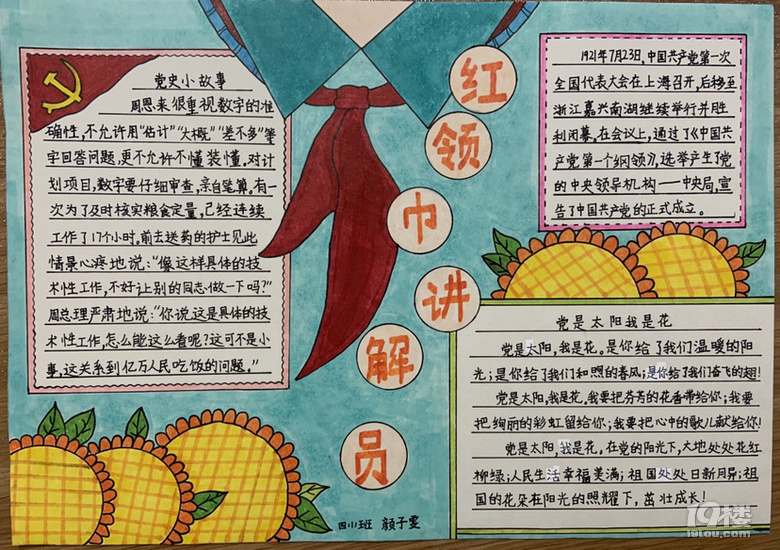 党史小故事
周恩来很重视数字的准
确性,不允许用"估计""大概""差不多"等
字回答问题,更不允许不懂装懂。对计
划项目,数字要仔细审查,亲自笔算。有一
次为了及时核实粮食定量,已经连续
工作了17个小时。前去送药的护士见此
情景心疼地说:"像这样具体的技
术性工作,不好让别的同志做一下吗?"
周总理严肃地说:"你说这是具体的技
术性工作,怎么能这么看呢?这可不是小
事,这关系到亿万人民吃饭的问题。"
红
领
巾
讲
解
员
1921年7月23日,中国共产党第一次
全国代表大会在上海召开,后移至
浙江嘉兴南湖继续举行并胜
利闭幕。在会议上,通过了《中国共
产党第一个纲领》,选举产生了党
的中央领导机构——中央局,宣
告了中国共产党的正式成立。
党是太阳我是花
党是太阳,我是花。是你给了我们温暖的阳
光;是你给了我们和照的春风;是你给了我们奋飞的翅!
党是太阳,我是花。我要把芬芳的花香带给你;我要
把绚丽的彩虹留给你;我要把心中的歌儿献给你!
党是太阳,我是花。在党的阳光下,大地处处花红
柳绿;人民生活幸福美满;祖国处处日新月异;祖
国的花朵在阳光的照耀下,茁壮成长!
四(1)班 颜子雯
19楼
19lou.com